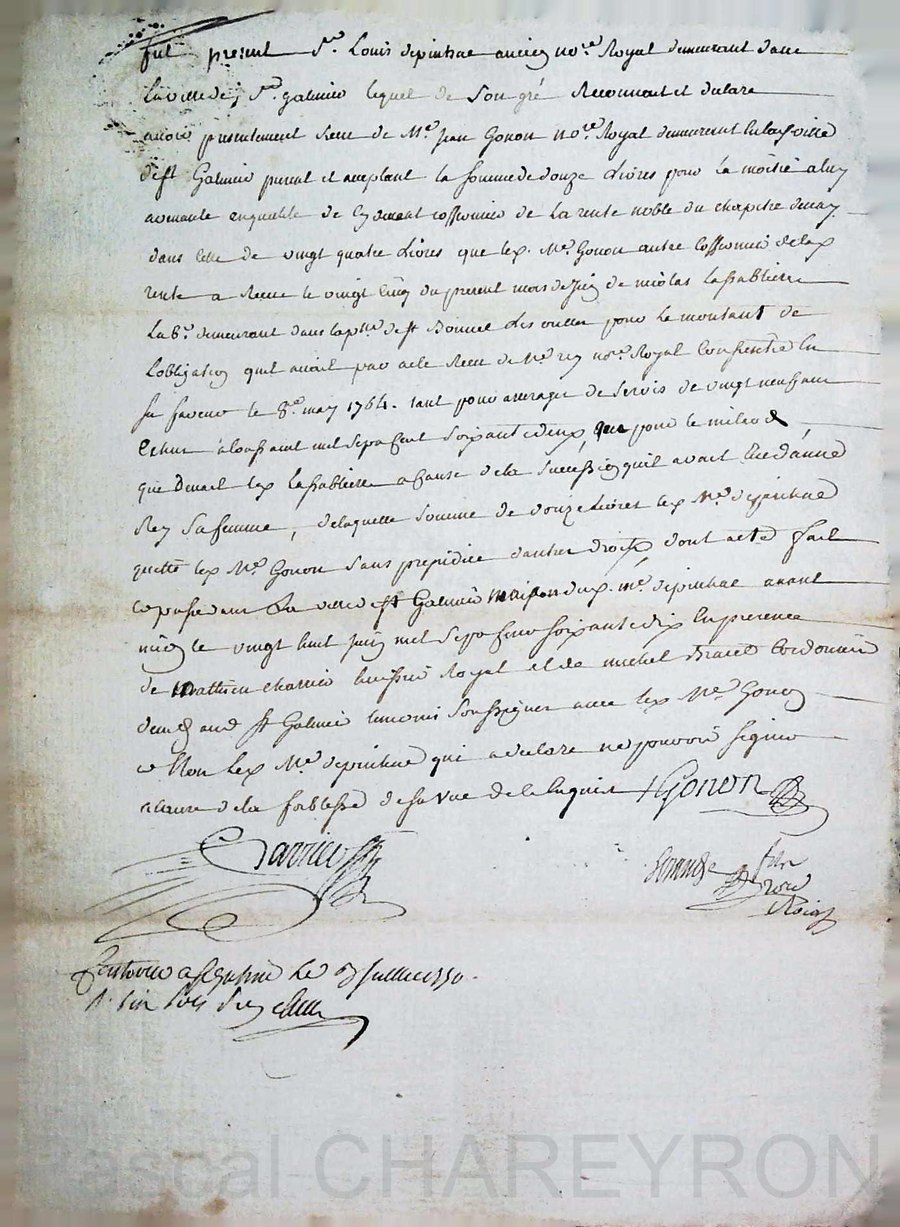 fut present Sr. Louis depinhac ancien nore. Royal demeurant dans
la ville de St. galmier lequel de son gré Reconnait et declare
avoir presentement Receu de Me. Jean Gonon nore. Royal demeurant en la ville
de St Galmier present et acceptant la somme de douze Livres pour la moitié a luy
avenante en qualité de cy devant cofermier de La rente noble du chapitre
dans celle de vingt quatre Livres que led. Me. Gonon autre cofermier de lad.
rente a Receu le vingt cinq du present mois de juin de nicolas Lasabliere
Labr. demeurant dans la psse de St Bonnet Les oulles pour le montant de
Lobligation quil avoit par acte Receu de Me. rey nore. Royal consentie en
sa faveur le 8e. may 1764. tant pour arrerages de servis de vingt neuf ans
Echus a la toussaint mil sept cent soixante deux, que pour le milods
que devait led. Lasablière a cause de la succession quil avait Eue d'anne
Rey sa femme, de laquelle somme de douze Livres led. Me. depinhac
quitte led. Me. Gonon sans prejudice d'autres droits dont acte fait
et passé dans La ville de St Galmier maison dud. me. depinhac avant
midy le vingt huit juin mil sept cent soixante dix En presence
de mathieu charrier huissier Royal et de michel cordonnier
demt and. St Galmier temoins soussignes avec led. Me. Gonon
et Non led. Me. depinhac qui a declaré ne pouvoir signer
a cause de la foiblesse de sa vue de ce Enquis Gonon
Carrier
Controlé a St galmier Le juillet 1770.
R.
Pascal CHAREYRON